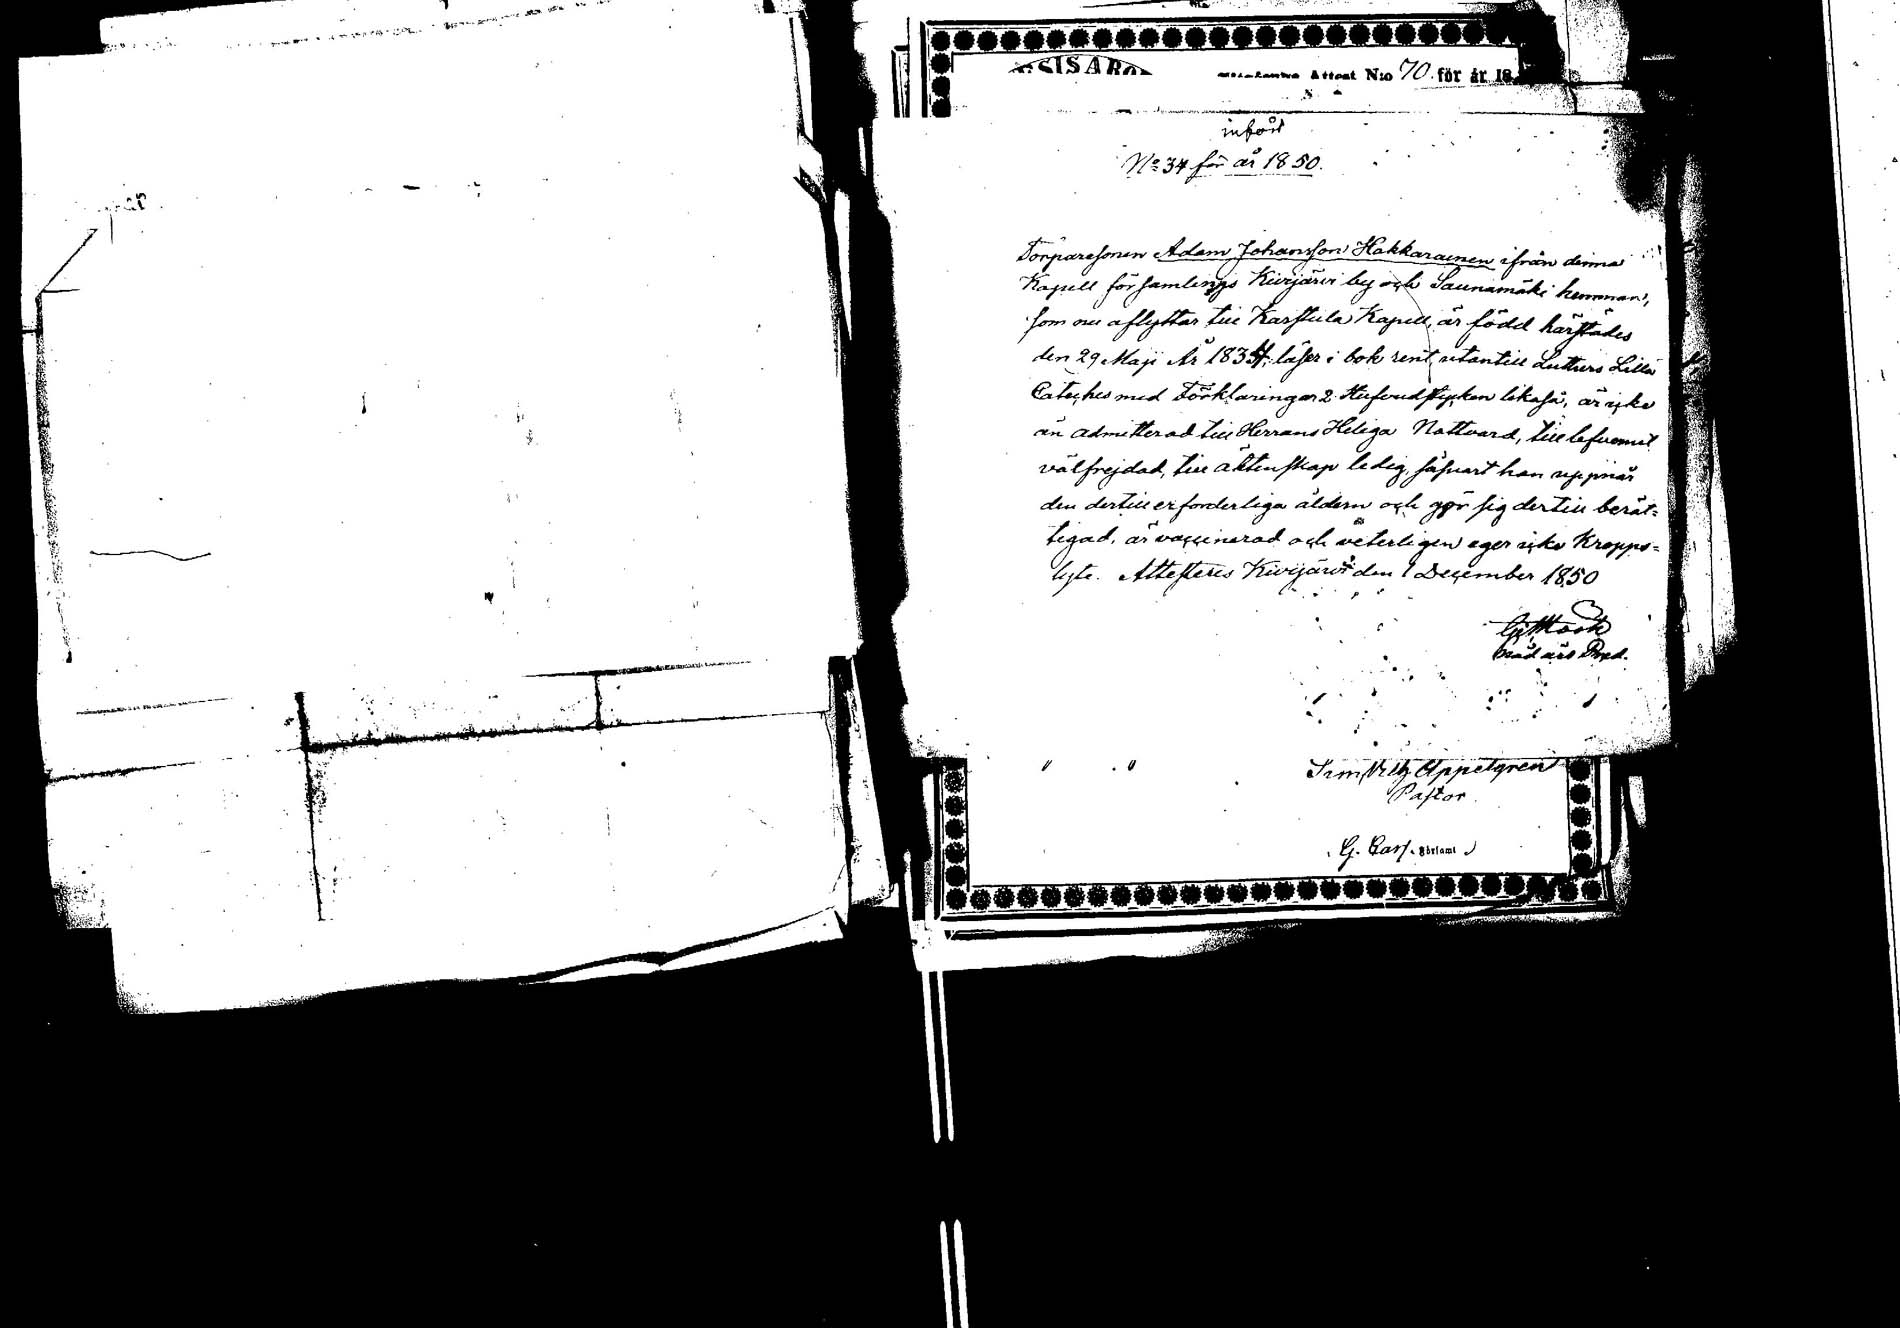 Attest N:o 70 för år 18
införd
No 34 för år 1850.
Torparesonen Adam Johansson Hakkarainen ifrån denna
Kapell församlings Kivijärvi by och Saunamäki hemman,
som nu aflyttar till Karstula Kapell, är född härstädes
den 29 Maji År 1834, läser i bok rent, utantill Luthers Lilla
Cateches med Förklaringar 2 Hufvudstycken likaså, är icke
än admitterad till Herrans Heliga Nattvard, till lefvernet
välfrejdad, till äktenskap ledig, såsnart han uppnår
den dertill erforderliga åldern och gör sig dertill berät=
tigad, är vaccinerad och veterligen eger icke Kropps=
lyte. Attesteras Kivijärvi den 1 December 1850
Appelgren
Pastor
G. Carl. Förlamt